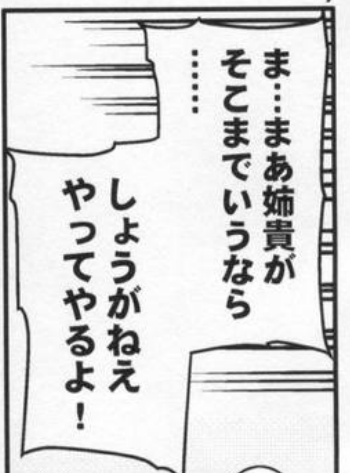 ま…まあ姉貴が
そこまでいうなら
……
しょうがねえ
やってやるよ！